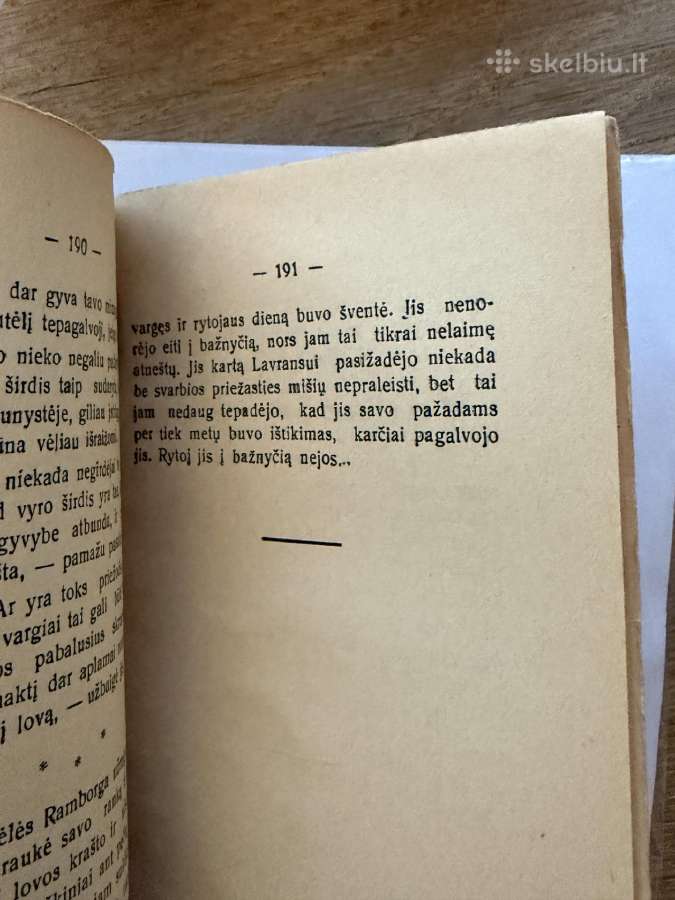 skelbiu.lt
— 190 —
dar gyva tavo
tepagalvoj,
nieko negaliu
širdis taip
giliau
vėliau
niekada negirdėjai
vyro širdis yra
gyvybe atbunda,
— pamažu
Ar yra toks
vargiai tai gali
pabalusius
naktį dar aplamai
į lovą, — užbaigė
* * *
Ramborga
savo ranką
lovos krašto ir
ant
— 191 —
vargęs ir rytojaus dieną buvo šventė. Jis neno-
rėjo eiti į bažnyčią, nors jam tai tikrai nelaimę
atneštų. Jis kartą Lavransui pasižadėjo niekada
be svarbios priežasties mišių nepraleisti, bet tai
jam nedaug tepadėjo, kad jis savo pažadams
per tiek metų buvo ištikimas, karčiai pagalvojo
jis. Rytoj jis į bažnyčią nejos...